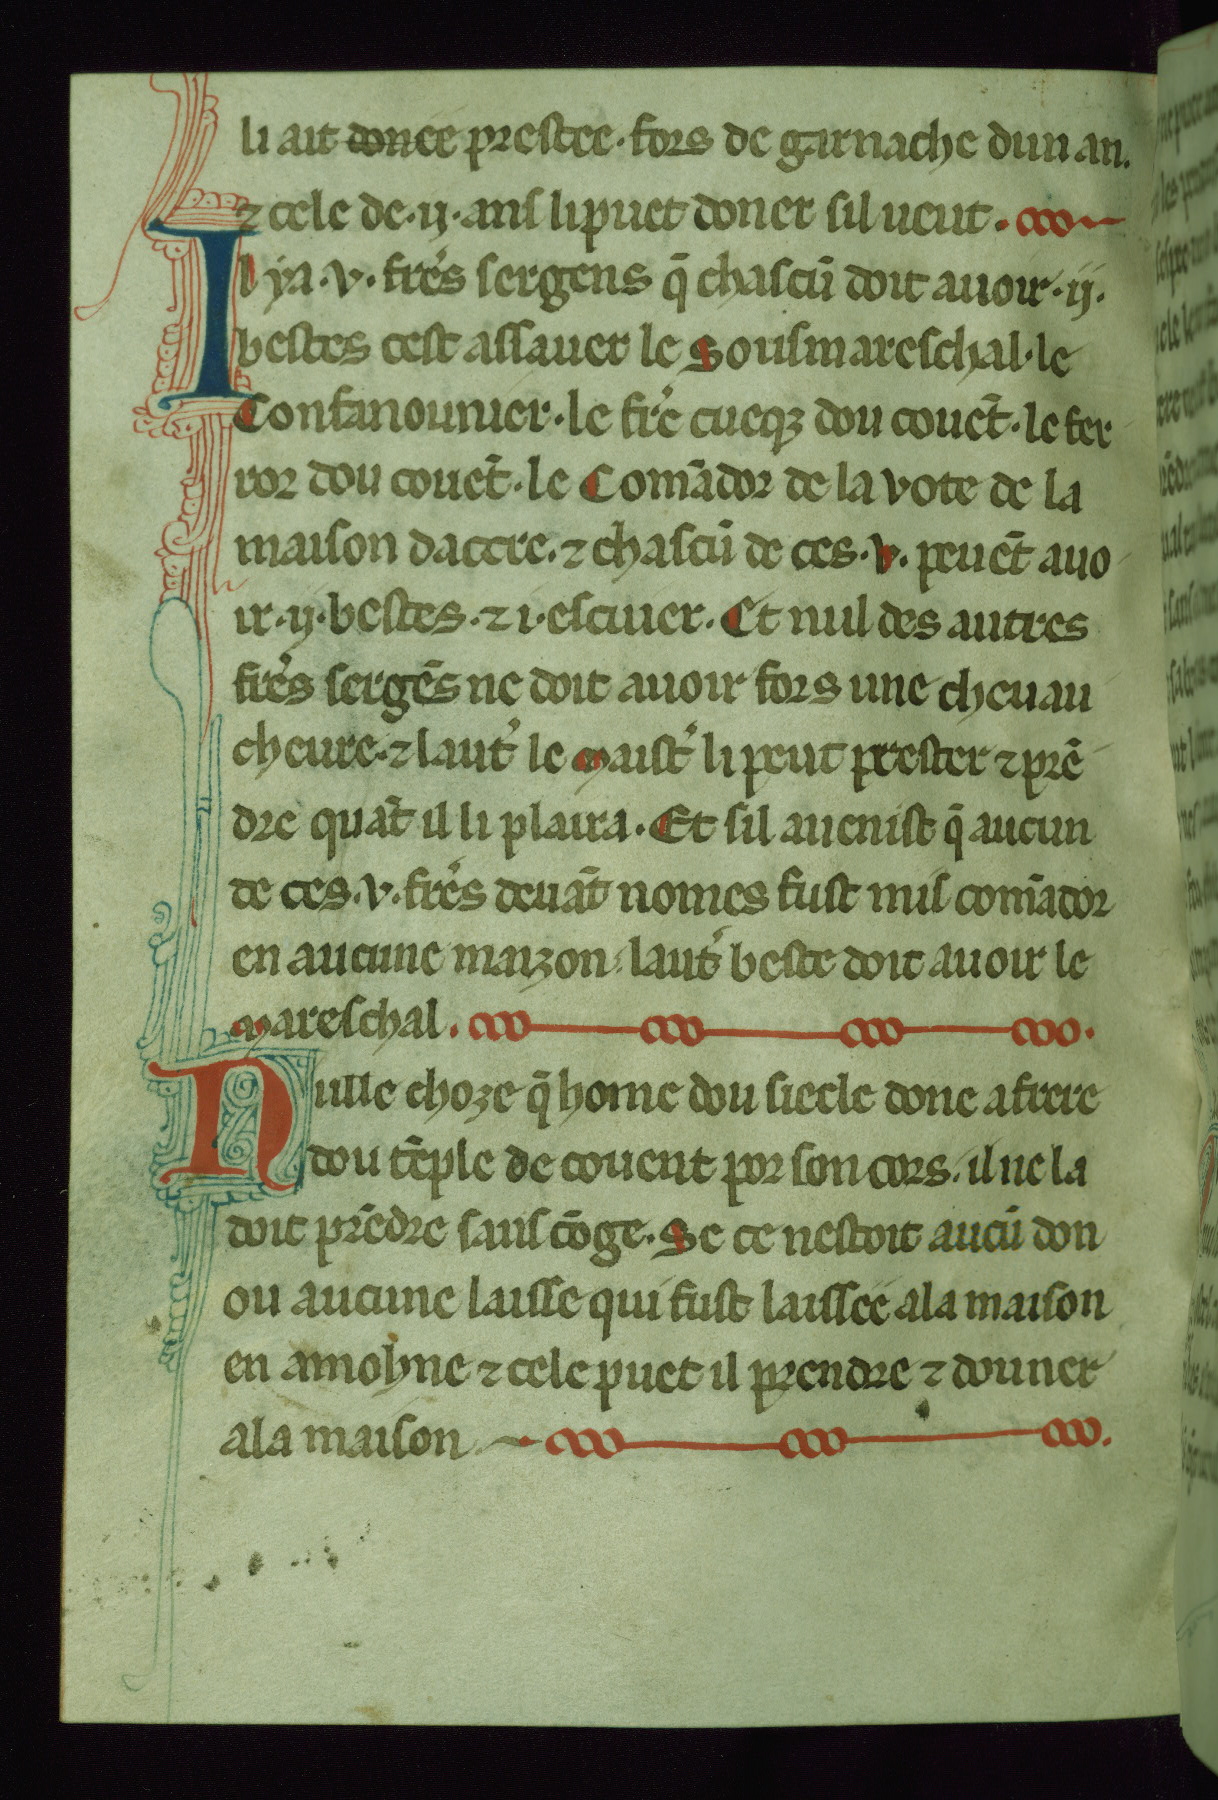 li ait donee prestee · fors de garnache dun an.
⁊ cele de · ij · ans li puet doner sil ueut.
Il ya · v · fres sergens q̃ chascũ doit auoir · ij ·
bestes cest assauer le Sousmareschal · le
Confanounier · le frẽ cuequ dou couẽt · le fer
ror dou couẽt · le Comãdor de la vote de la
maison daccre · ⁊ chascũ de ces · v · peuẽt auo
ir · ij · bestes · ⁊ i · escuier. Et nul des autres
fres sergẽs ne doit auoir fors une cheuau
cheure · ⁊ laut' le Maist' li peut prester ⁊ prẽ
dre quãt il li plaira. Et sil auenist q̃ aucun
de ces · v · fres deuãt nomes fust mis comãdor
en aucune maizon · laut' beste doit auoir le
Mareschal.
Nulle choze q̃ home dou siecle done a frere
dou tẽple de couent por son cors · il ne la
doit prẽdre sans cõge. Se ce nestoit aucũ don
ou aucune laisse qui fust laissee ala maison
en amohne ⁊ cele puet il prendre ⁊ douner
ala maison